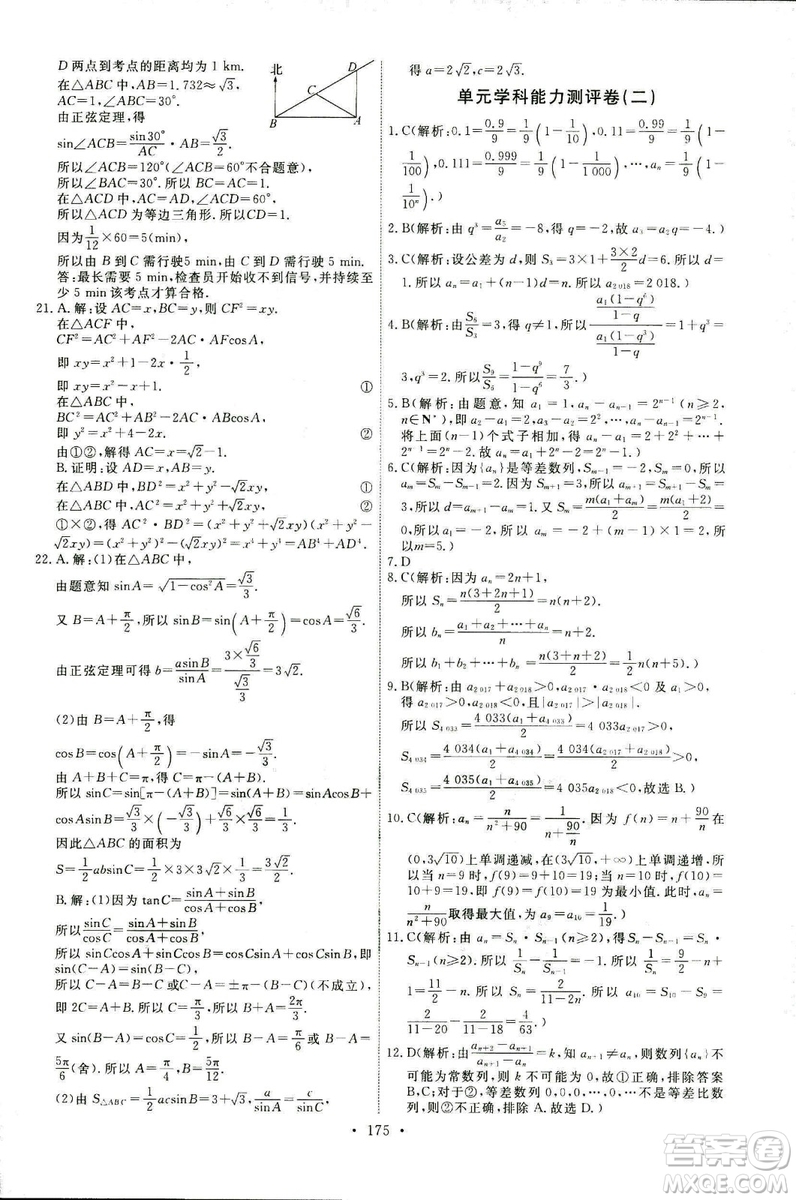 D 两点到考点的距离均为 1 km.
在△ABC中，AB=1.732≈√3，
AC=1，∠ABC=30°.
由正弦定理，得
sin∠ACB=sin30°/AC · AB=√3/2.
北
D
C
B
A
所以∠ACB=120°(∠ACB=60°不合题意).
所以∠BAC=30°. 所以 BC=AC=1.
在△ACD中，AC=AD，∠ACD=60°，
所以△ACD为等边三角形. 所以CD=1.
因为1/12×60=5(min)，
所以由 B 到 C 需行驶5 min，由 C 到 D 需行驶 5 min.
答：最长需要 5 min，检查员开始收不到信号，并持续至
少 5 min 该考点才算合格.
21. A. 解：设 AC=x，BC=y，则 CF²=xy.
在△ACF中，
CF²=AC²+AF²-2AC·AFcosA，
即 xy=x²+1-2x·1/2，
即 xy=x²-x+1. ①
在△ABC中，
BC²=AC²+AB²-2AC·ABcosA，
即 y²=x²+4-2x. ②
由①②，解得 x=1，即 AC=√2-1.
B. 证明：设 AB=x，AD=y.
在△ABD中，BD²=x²+y²-√2xy. ①
在△ABC中，AC²=x²+y²+√2xy. ②
①×②，得 AC²·BD²=(x²+y²+√2xy)(x²+y²-
√2xy)=(x²+y²)²-2x²y²=x⁴+y⁴=AB⁴+AD⁴.
22. A. 解：(1)在△ABC中，
由题意知 sinA=√(1-cos²A)=√3/3.
又 B=A+π/2，所以 sinB=sin(A+π/2)=cosA=√6/3.
由正弦定理可得 b=asinB/sinA=(3×√6/3)/(√3/3)=3√2.
(2)由 B=A+π/2，得
cosB=cos(A+π/2)=-sinA=-√3/3.
由 A+B+C=π，得 C=π-(A+B).
所以 sinC=sin[π-(A+B)]=sin(A+B)=sinAcosB+
cosAsinB=√3/3×(-√3/3)+√6/3×√6/3=1/3.
因此△ABC的面积为
S=1/2absinC=1/2×3×3√2×1/3=3√2/2.
B. 解：(1)因为 tanC=(sinA+sinB)/(cosA+cosB)，
所以sinC/cosC=(sinA+sinB)/(cosA+cosB).
所以 sinCcosA+sinCcosB=cosCsinA+cosCsinB，即
sin(C-A)=sin(B-C).
所以 C-A=B-C 或 C-A=±π-(B-C)(不成立)，
即 2C=A+B，所以 C=π/3. 所以 B+A=2π/3.
又 sin(B-A)=cosC=1/2，所以 B-A=π/6或 B-A=
5π/6(舍). 所以 A=π/4，B=5π/12.
(2)由 S△ABC=1/2acsinB=3+√3，a/sinA=c/sinC，
得 a=2√2，c=2√3.
单元学科能力测评卷(二)
1. C(解析：0.1=0.9/9=1/9(1-1/10)，0.11=0.99/9=1/9(1-
1/100)，0.111=0.999/9=1/9(1-1/1 000)，…，aₙ=1/9(1-
1/10ⁿ).)
2. B(解析：由 q³=a₅/a₂=-8，得 q=-2，故 a₃=a₂q=-4.)
3. C(解析：设公差为 d，由题意，得 S₃=3×1+3×2/2 d=6，d=
1. 所以 aₙ=n. 所以 a₂ ₀₁₈=2 018.)
4. B(解析：由题意，得 q≠1，所以S₆/S₃=(a₁(1-q⁶)/(1-q))/(a₁(1-q³)/(1-q))=1+q³=
3，q³=2. 所以S₉/S₆=(1-q⁹)/(1-q⁶)=7/3.)
5. B(解析：由题意，知 a₁=1，aₙ-aₙ₋₁=2ⁿ⁻¹(n≥2，
n∈N*)，即 a₂-a₁=2，a₃-a₂=2²，…，aₙ-aₙ₋₁=2ⁿ⁻¹.
将上面(n-1)个式子相加，得 aₙ-a₁=2+2²+…+
2ⁿ⁻¹，即 aₙ=1+2+2²+…+2ⁿ⁻¹=2ⁿ-1.)
6. C(解析：因为{aₙ}是等差数列，Sₘ₋₁=-2，Sₘ=0，所
以 aₘ=Sₘ-Sₘ₋₁=2. 所以 Sₘ=m(a₁+aₘ)/2=m(a₁+2)/2=
0，所以 a₁=-2. 因为 Sₘ₊₁=3，所以 aₘ₊₁=Sₘ₊₁-Sₘ=
3. 所以 d=aₘ₊₁-aₘ=1. 所以 aₘ=-2+(m-1)=2. 所
以m=5.)
7. D
8. C(解析：因为 aₙ=2n+1，
所以 Sₙ=n(3+2n+1)/2=n(n+2).
所以 bₙ=(a₁+a₂+…+aₙ)/n=n+2.
所以 b₁+b₂+…+bₙ=n(3+n+2)/2=1/2n(n+5).)
9. B(解析：由 a₂ ₀₁₇+a₂ ₀₁₈>0，a₂ ₀₁₇·a₂ ₀₁₈<0 及 a₁>0，
得 a₂ ₀₁₇>0，a₂ ₀₁₈<0，且|a₂ ₀₁₇|>|a₂ ₀₁₈|.
所以 S₄ ₀₃₃=4 033(a₁+a₄ ₀₃₃)/2=4 033a₂ ₀₁₇>0，
S₄ ₀₃₄=4 034(a₁+a₄ ₀₃₄)/2=4 034(a₂ ₀₁₇+a₂ ₀₁₈)/2>0，
S₄ ₀₃₅=4 035(a₁+a₄ ₀₃₅)/2=4 035a₂ ₀₁₈<0，故选 B.)
10. C(解析：aₙ=n/(n²+90)=1/(n+90/n). 因为 f(n)=n+90/n在
(0,3√10)上单调递减，在(3√10，+∞)上单调递增，所
以当 n=9 时，f(9)=9+10=19；当 n=10 时，f(10)=
10+9=19，即 f(9)=f(10)为最小值，此时 aₙ=
n/(n²+90)取得最大值，为 a₉=a₁₀=1/19.)
11. C(解析：由 aₙ=Sₙ·Sₙ₋₁(n≥2)，得 Sₙ-Sₙ₋₁=Sₙ
·Sₙ₋₁(n≥2)，所以 Sₙ=2/(11-2n)，所以 a₁₀=S₁₀-S₉=
2/(11-20)-2/(11-18)=4/63.)
12. D(解析：由(aₙ₊₂-aₙ₊₁)/(aₙ₊₁-aₙ)=k，可知 aₙ₊₁≠aₙ，所以数列{aₙ}不
可能为常数列，则 k 不可能为 0，故①正确，排除答案
B，C；对于②，等差数列 0,0,0,0,… 不是等差比数列，所
以②不正确，排除 A. 故选D.)
175
答案圈
MXQE.COM